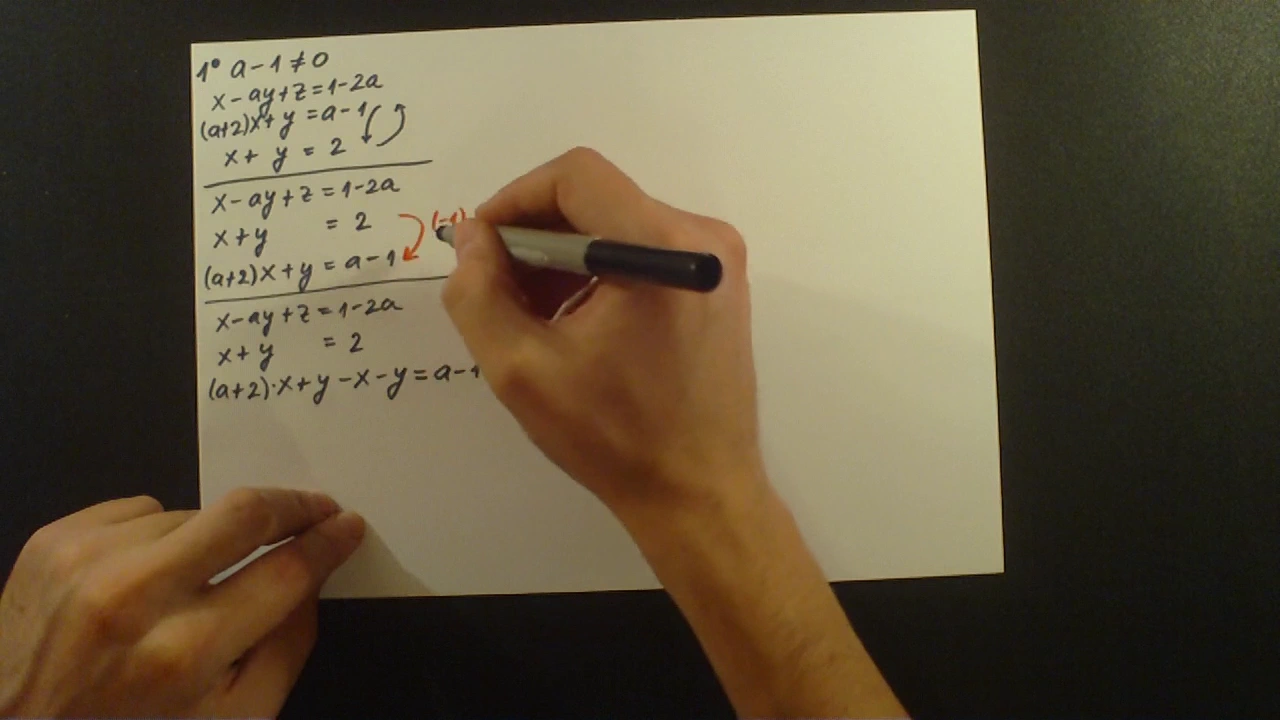 1° a-1≠0
x-ay+z=1-2a
(a+2)x+y=a-1
x+y=2
x-ay+z=1-2a
x+y =2
(a+2)x+y=a-1 (-1)
x-ay+z=1-2a
x+y =2
(a+2)·x+y-x-y=a-1